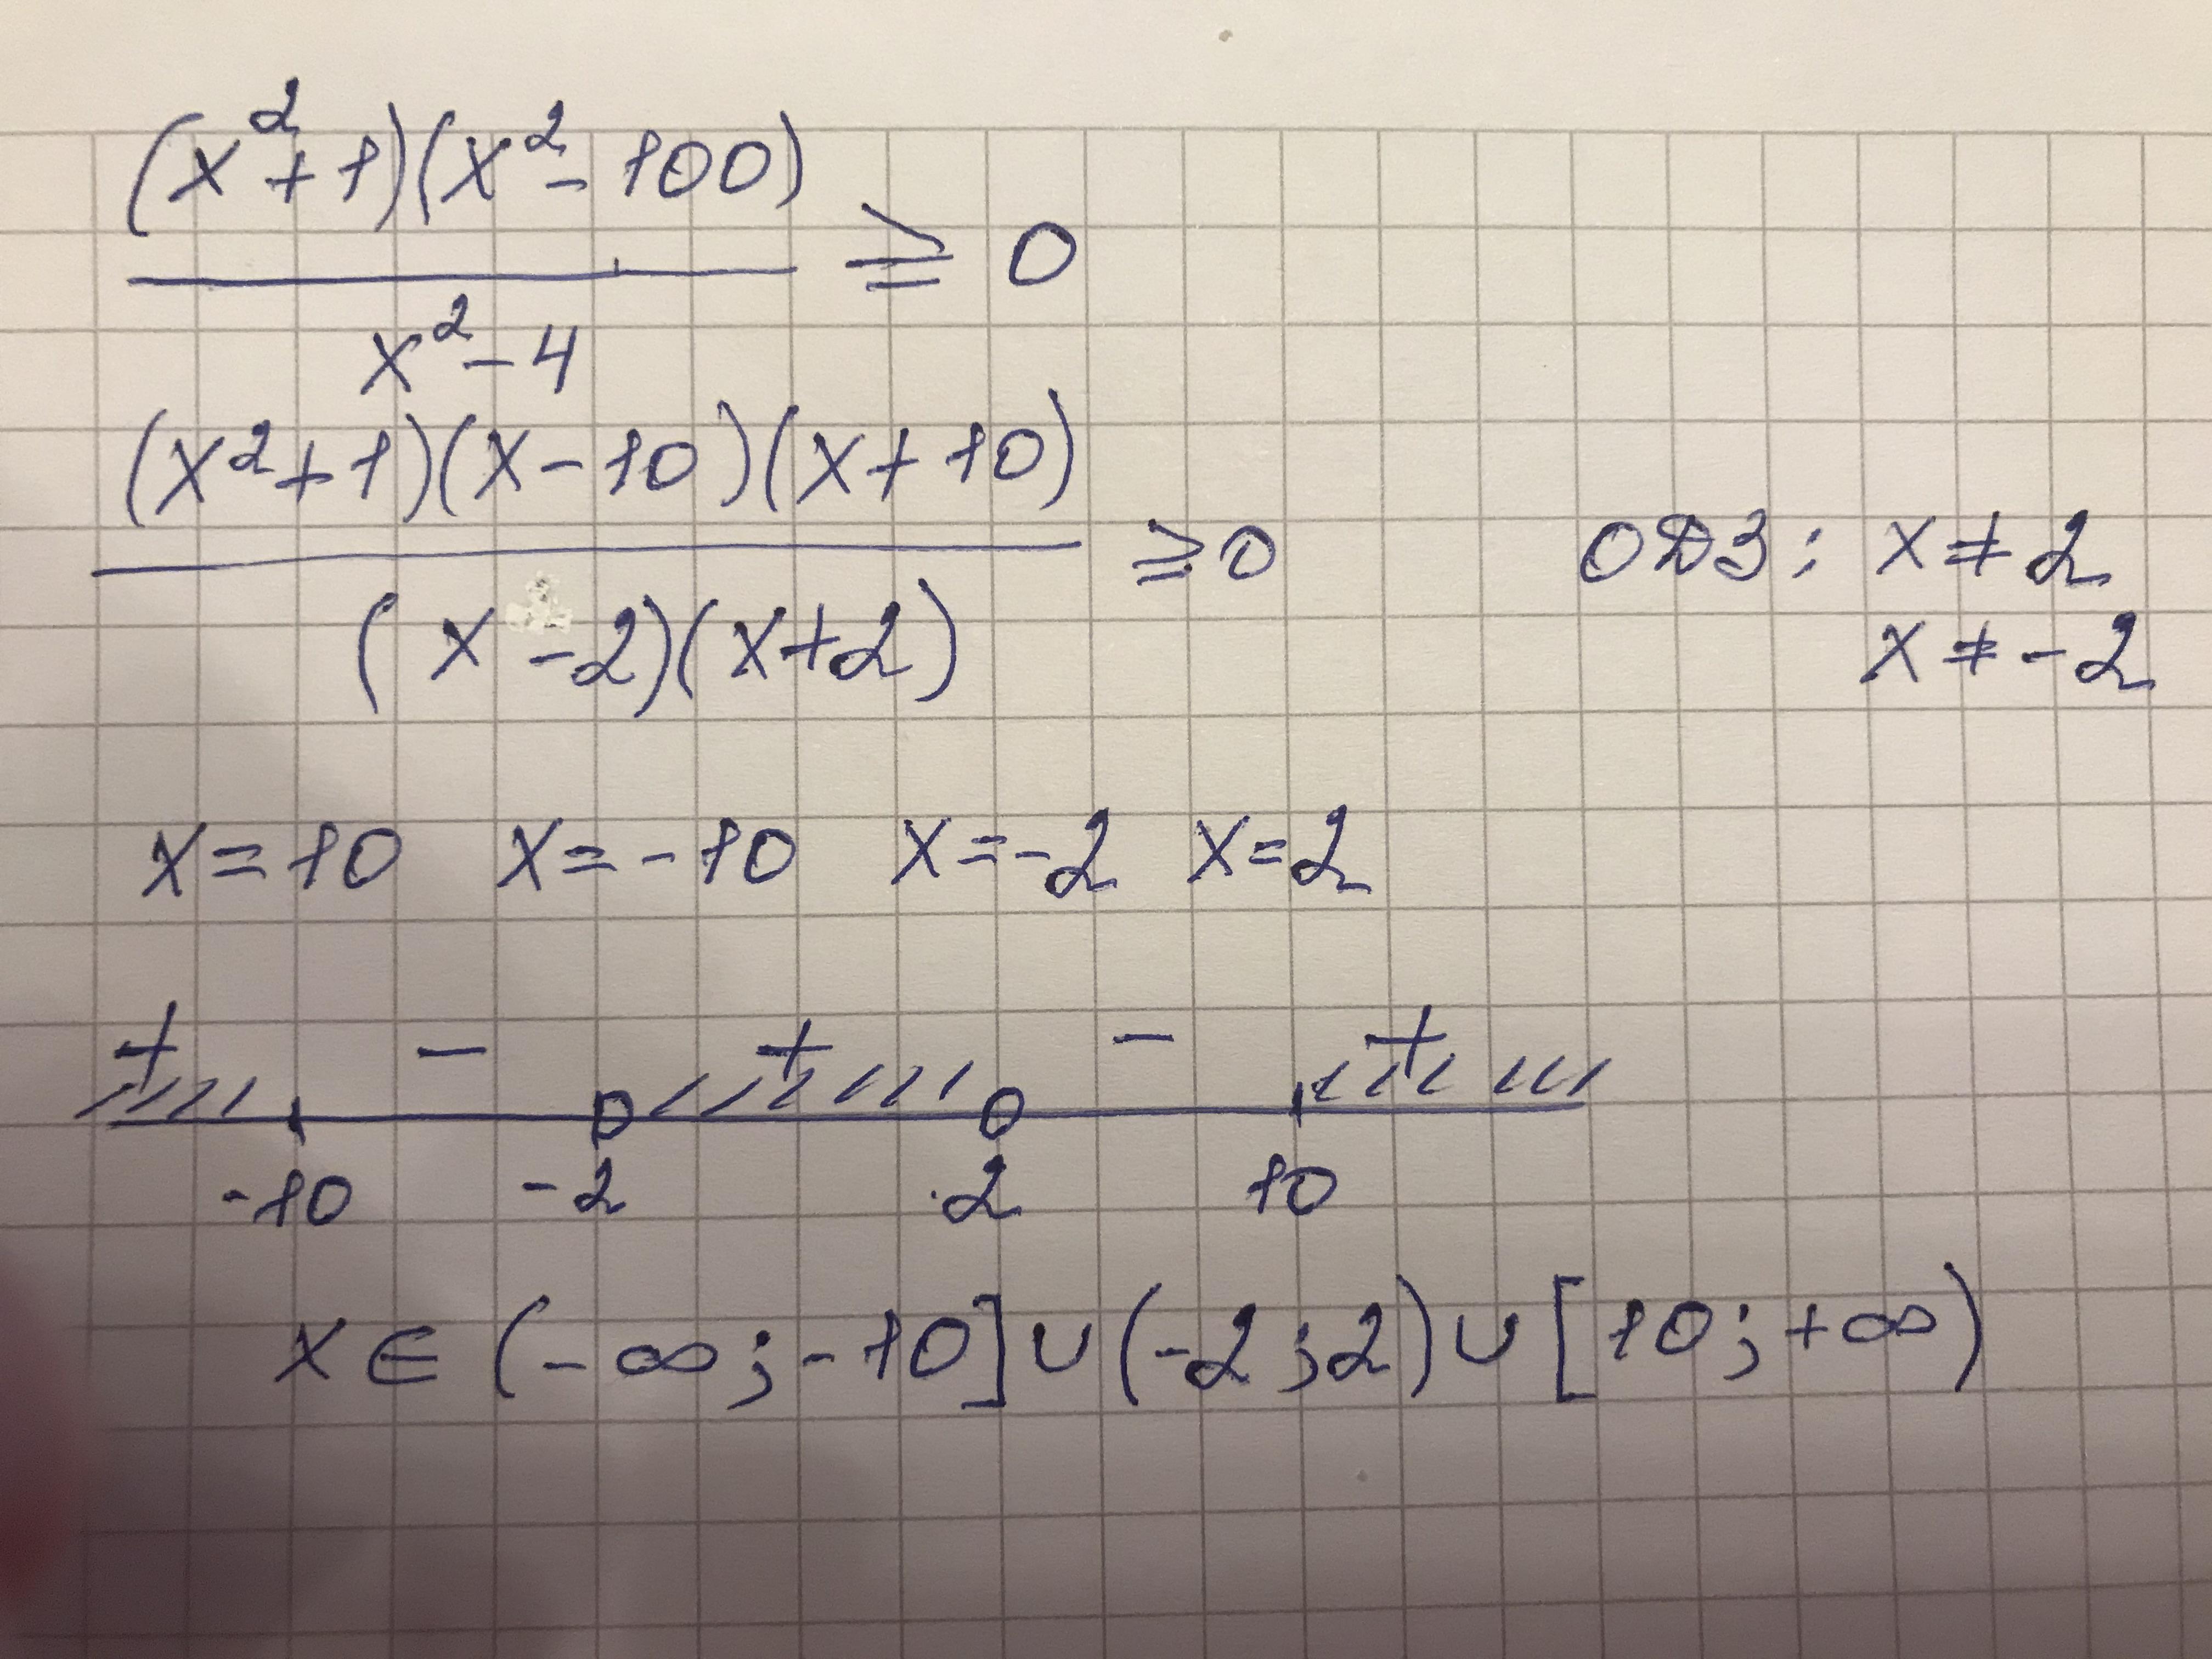 (x²+1)(x²-100)
――――― ≥ 0
x²-4
(x²+1)(x-10)(x+10)
――――― ≥0
(x-2)(x+2)
ОДЗ: x≠2
x≠-2
x=10 x=-10 x=-2 x=2
+ - + - +
-10 -2 2 10
x∈(-∞;-10]∪(-2;2)∪[10;+∞)